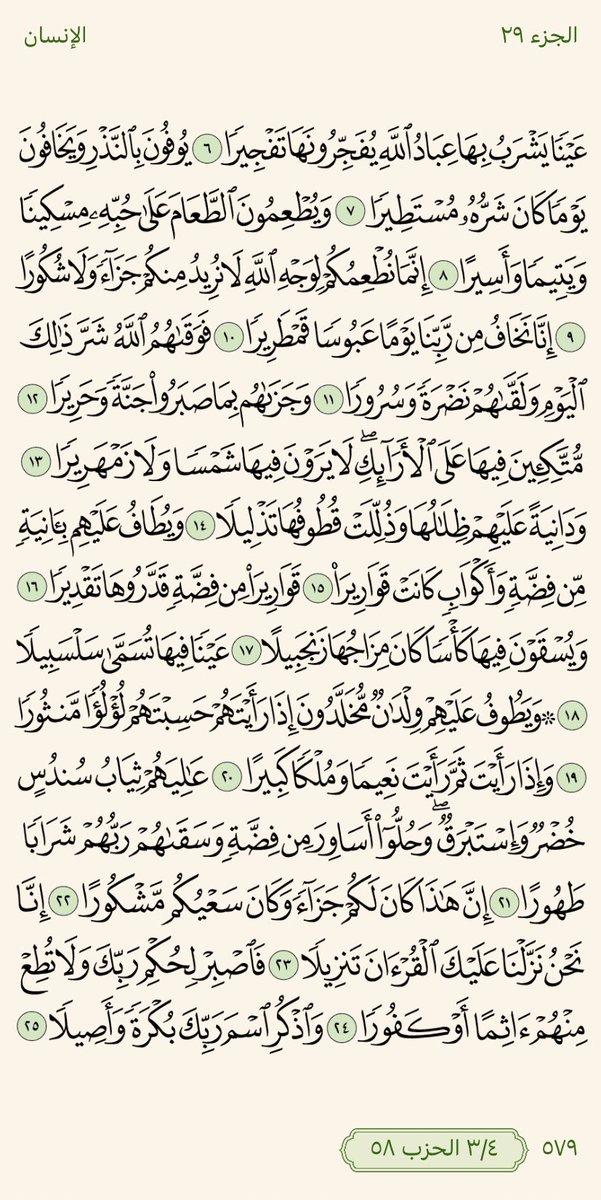 الجزء ٢٩
الإنسان
عَيْنٗا يَشْرَبُ بِهَا عِبَادُ ٱللَّهِ يُفَجِّرُونَهَا تَفْجِيرٗا ٦ يُوفُونَ بِٱلنَّذْرِ وَيَخَافُونَ
يَوْمٗا كَانَ شَرُّهُۥ مُسْتَطِيرٗا ٧ وَيُطْعِمُونَ ٱلطَّعَامَ عَلَىٰ حُبِّهِۦ مِسْكِينٗا
وَيَتِيمٗا وَأَسِيرًا ٨ إِنَّمَا نُطْعِمُكُمْ لِوَجْهِ ٱللَّهِ لَا نُرِيدُ مِنكُمْ جَزَآءٗ وَلَا شُكُورًا
٩ إِنَّا نَخَافُ مِن رَّبِّنَا يَوْمًا عَبُوسٗا قَمْطَرِيرٗا ١٠ فَوَقَىٰهُمُ ٱللَّهُ شَرَّ ذَٰلِكَ
ٱلْيَوْمِ وَلَقَّىٰهُمْ نَضْرَةٗ وَسُرُورٗا ١١ وَجَزَىٰهُم بِمَا صَبَرُوا۟ جَنَّةٗ وَحَرِيرٗا ١٢
مُّتَّكِـِٔينَ فِيهَا عَلَى ٱلْأَرَآئِكِۖ لَا يَرَوْنَ فِيهَا شَمْسٗا وَلَا زَمْهَرِيرٗا ١٣
وَدَانِيَةً عَلَيْهِمْ ظِلَٰلُهَا وَذُلِّلَتْ قُطُوفُهَا تَذْلِيلٗا ١٤ وَيُطَافُ عَلَيْهِم بِـَٔانِيَةٖ
مِّن فِضَّةٖ وَأَكْوَابٖ كَانَتْ قَوَارِيرَا۠ ١٥ قَوَارِيرَا۟ مِن فِضَّةٖ قَدَّرُوهَا تَقْدِيرٗا ١٦
وَيُسْقَوْنَ فِيهَا كَأْسٗا كَانَ مِزَاجُهَا زَنجَبِيلًا ١٧ عَيْنٗا فِيهَا تُسَمَّىٰ سَلْسَبِيلٗا
١٨ ۞ وَيَطُوفُ عَلَيْهِمْ وِلْدَٰنٞ مُّخَلَّدُونَ إِذَا رَأَيْتَهُمْ حَسِبْتَهُمْ لُؤْلُؤٗا مَّنثُورٗا
١٩ وَإِذَا رَأَيْتَ ثَمَّ رَأَيْتَ نَعِيمٗا وَمُلْكٗا كَبِيرًا ٢٠ عَٰلِيَهُمْ ثِيَابُ سُندُسٍ
خُضْرٞ وَإِسْتَبْرَقٞۖ وَحُلُّوٓا۟ أَسَاوِرَ مِن فِضَّةٖ وَسَقَىٰهُمْ رَبُّهُمْ شَرَابٗا
طَهُورًا ٢١ إِنَّ هَٰذَا كَانَ لَكُمْ جَزَآءٗ وَكَانَ سَعْيُكُم مَّشْكُورًا ٢٢ إِنَّا
نَحْنُ نَزَّلْنَا عَلَيْكَ ٱلْقُرْءَانَ تَنزِيلٗا ٢٣ فَٱصْبِرْ لِحُكْمِ رَبِّكَ وَلَا تُطِعْ
مِنْهُمْ ءَاثِمًا أَوْ كَفُورٗا ٢٤ وَٱذْكُرِ ٱسْمَ رَبِّكَ بُكْرَةٗ وَأَصِيلٗا ٢٥
٥٧٩
٣/٤ الحزب ٥٨